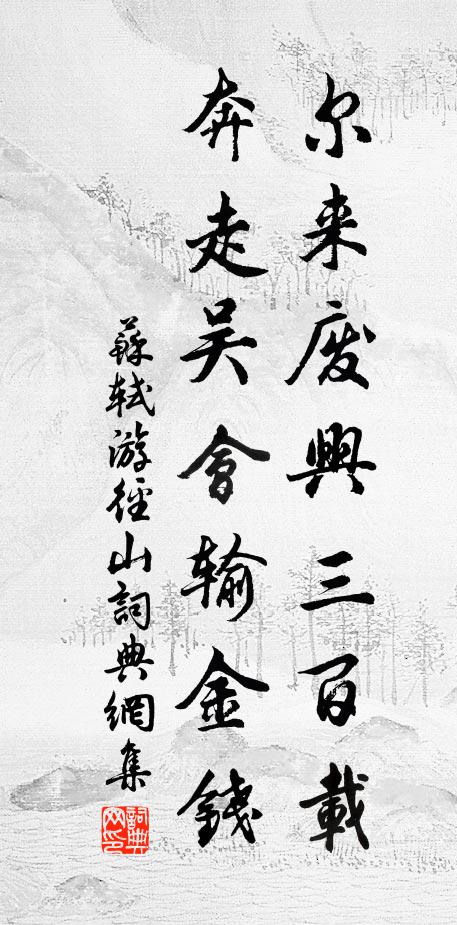 尔来废興三百載
奔走吴會输金錢
蘇軾游徑山詞典網集
詞典网印